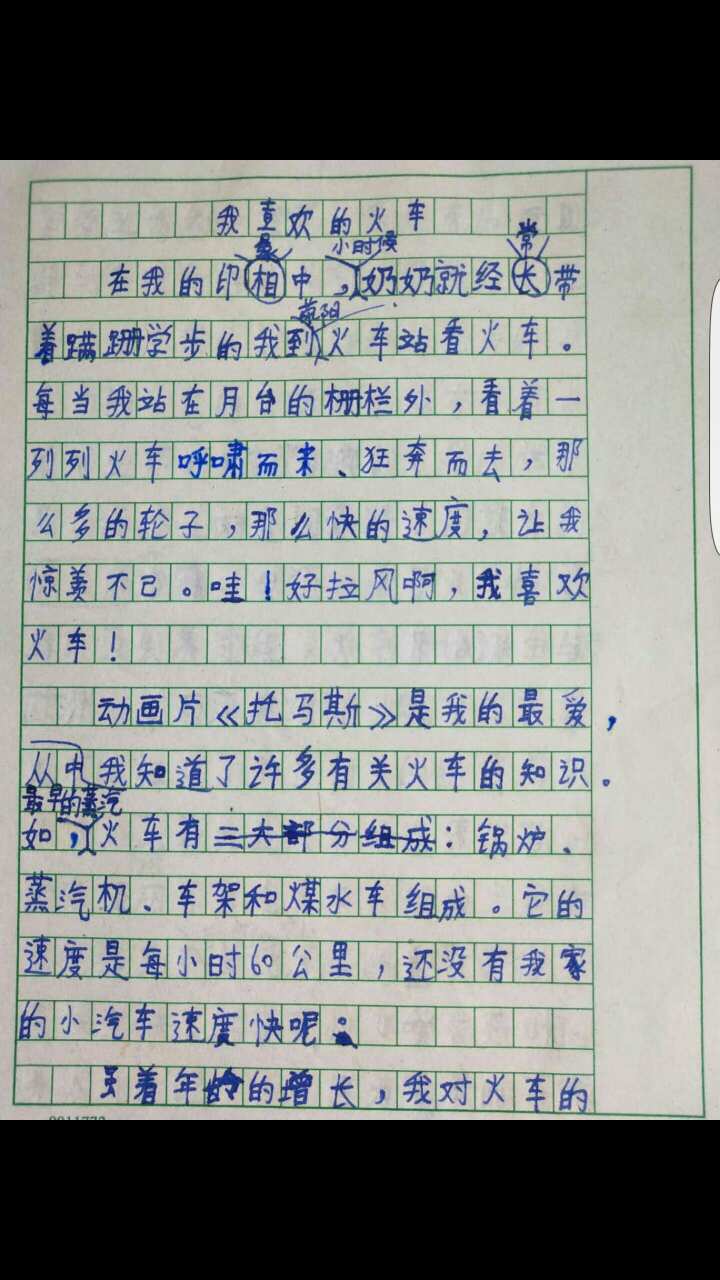 我喜欢的火车
象 小时候 常
在我的印相中，奶奶就经长带
荥阳
着蹒跚学步的我到火车站看火车。
每当我站在月台的栅栏外，看着一
列列火车呼啸而来、狂奔而去，那
么多的轮子，那么快的速度，让我
惊羡不已。哇！好拉风啊，我喜欢
火车！
动画片《托马斯》是我的最爱，
从中我知道了许多有关火车的知识。
最早的蒸汽
如，火车有三大部分组成：锅炉、
蒸汽机、车架和煤水车组成。它的
速度是每小时60公里，还没有我家
的小汽车速度快呢。
着年龄的增长，我对火车的